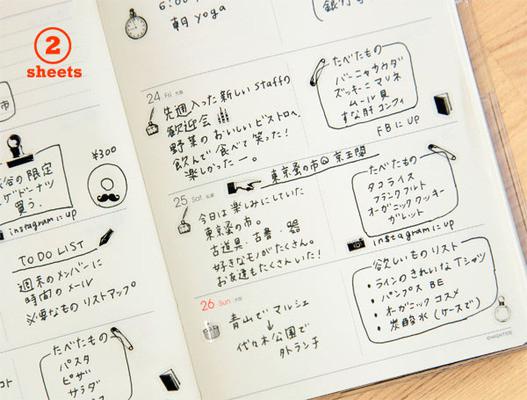 2
sheets
6:00
朝 yoga
24 Fri 大安
先週入った新しいstaffの
歓迎会
野菜のおいしいビストロへ。
飲んで食べて笑った!
楽しかったー。
たべたもの
バーニャカウダ
ズッキーニマリネ
ムール貝
すな肝コンフィ
FBにup
の限定
ドーナツ
買う.
¥300
instagramにup
TO DO LIST
週末のメンバーに
時間のメール
必要なものリストアップ
たべたもの
パスタ
ピザ
サラダ
東京蚤の市@京王閣
25 Sat
今日は楽しみにしていた
東京蚤の市。
古道具、古書、器
好きなモノがたくさん。
お友達もたくさんいた!
たべたもの
タコライス
フランクフルト
オーガニッククッキー
ガレット
instagramにup
26 Sun
青山でマルシェ
代々木公園で
外ランチ
欲しいものリスト
・ラインのきれいなTシャツ
・パンプス BE
・オーガニックコスメ
・炭酸水(ケースで)
©HIGHTIDE